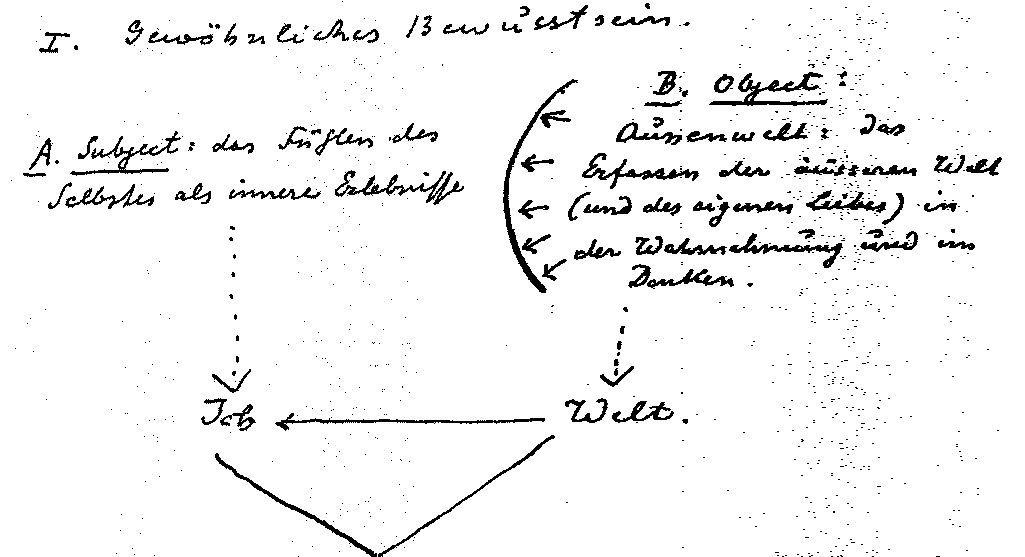 I. Gewöhnliches Bewusstsein.
A. Subject: das Fühlen des
Selbstes als innere Erlebnisse
B. Object:
Aussenwelt: das
Erfassen der äusseren Welt
(und des eigenen Leibes) in
der Wahrnehmung und im
Denken.
Ich
Welt.